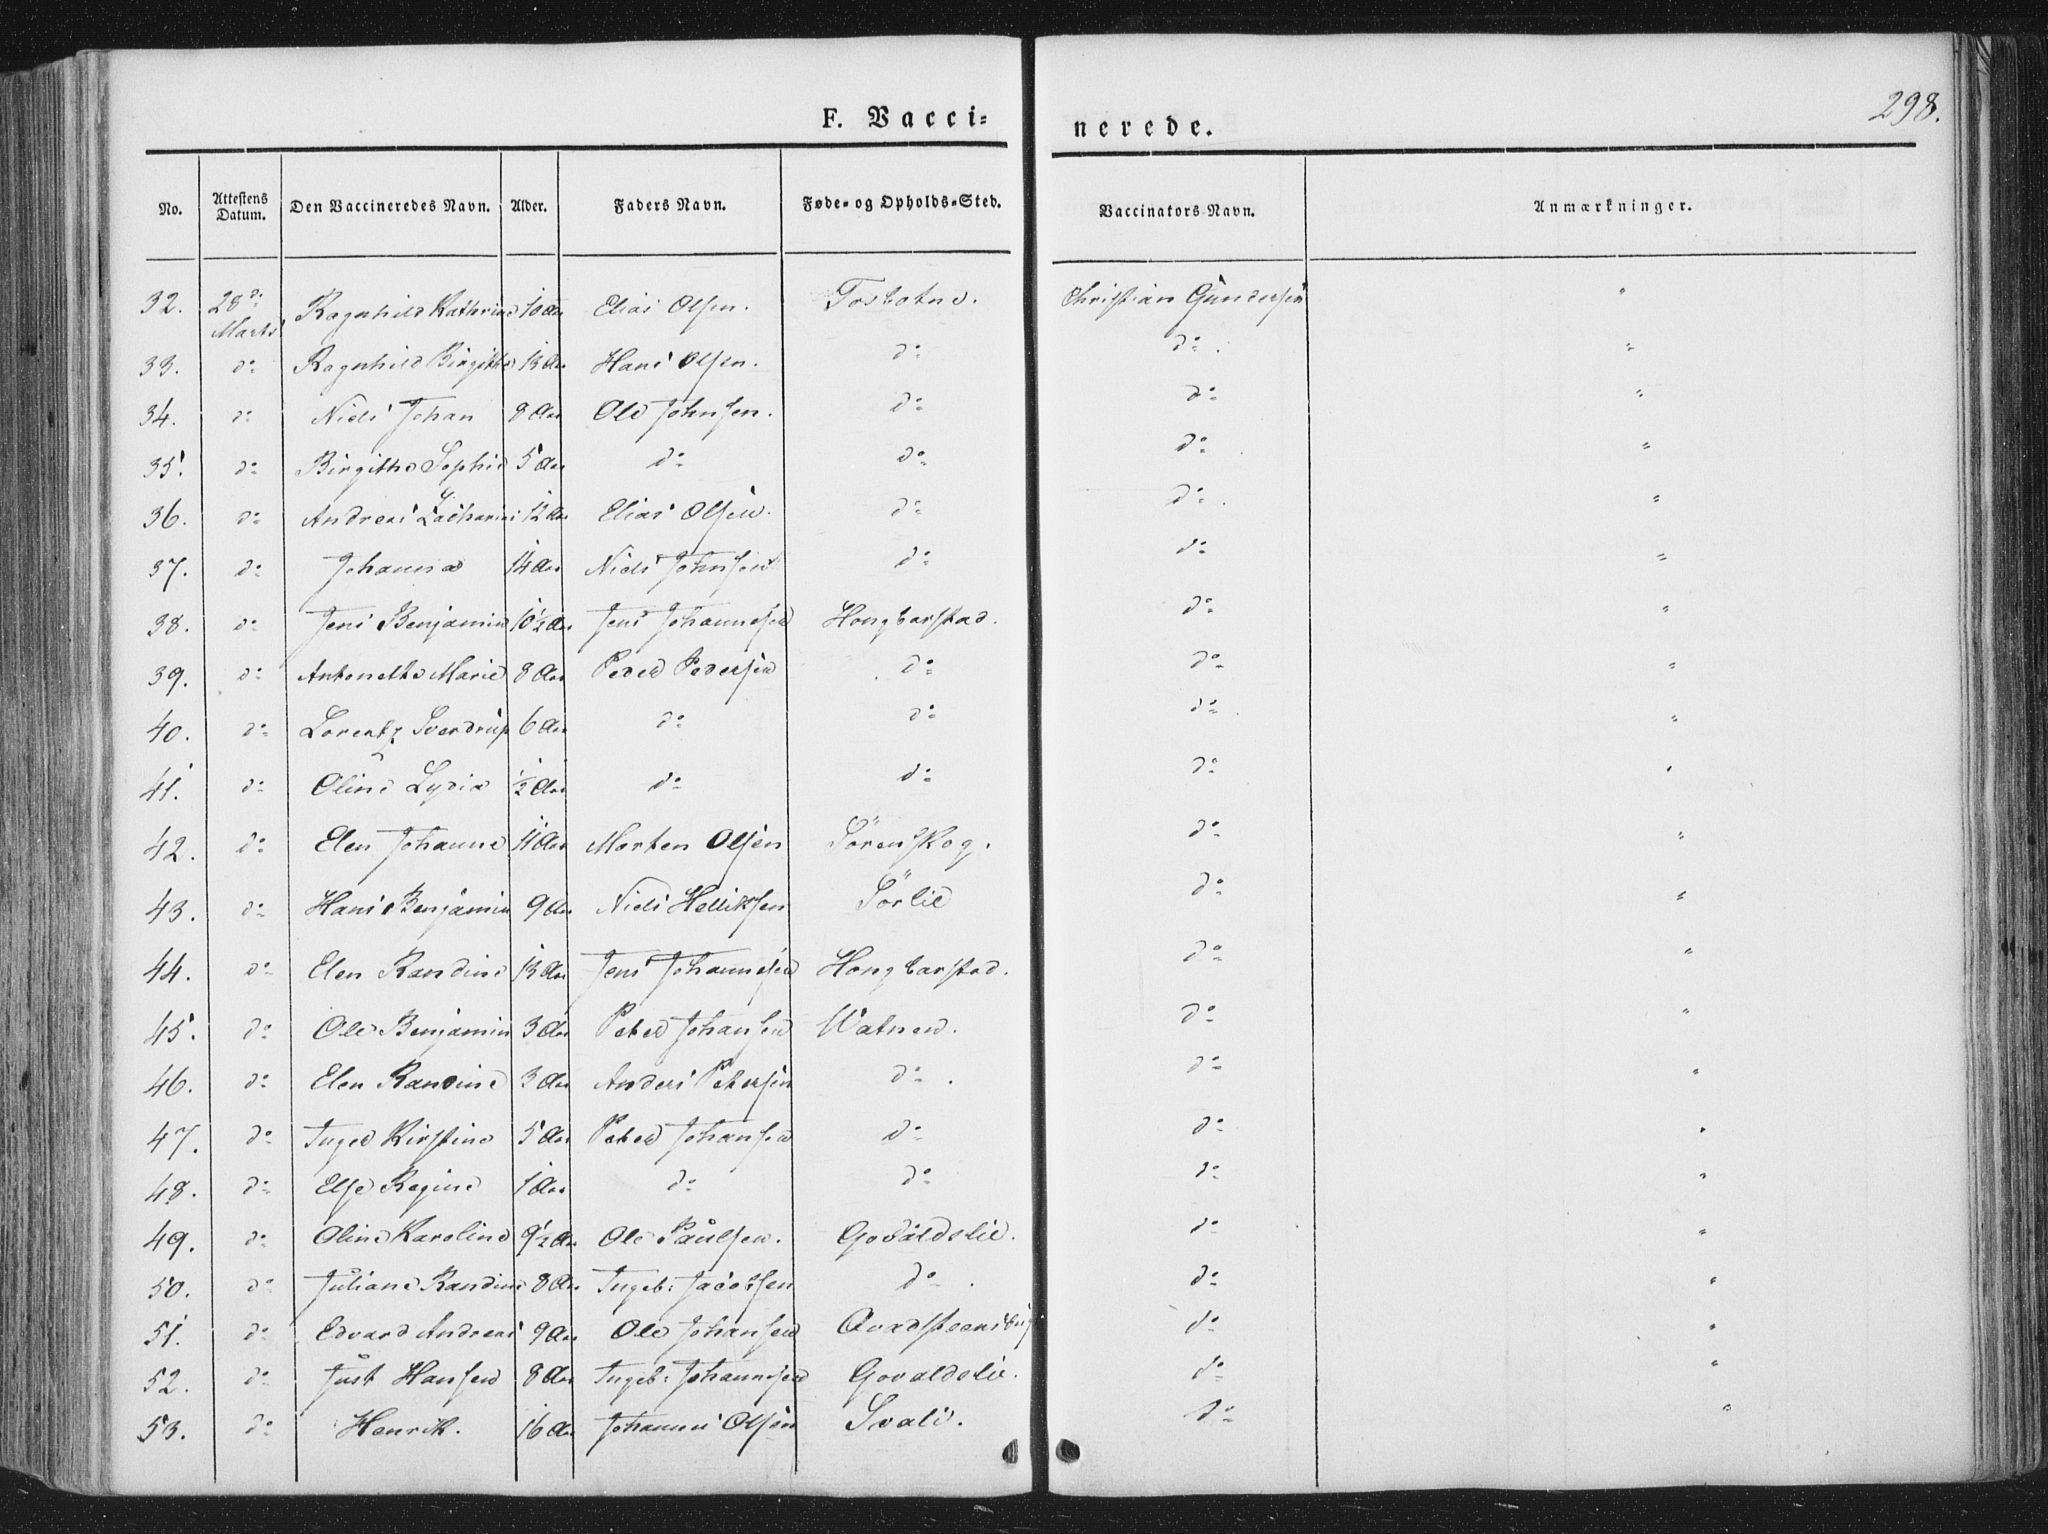 298.
F. Vacci= nerede.
No. Attestens Datum. Den Vaccineredes Navn. Alder. Faders Navn. Føde- og Opholds-Sted. Vaccinators Navn. Anmærkninger.
32. 28d: Marts Ragnhild Kathrine 10 Aar Elias Olsen. Tosbotne. Christian Gundersen "
33. do Ragnhild Birgithe 13 Aar Hans Olsen. do do "
34. do Niels Johan 8 Aar Ole Johnsen. do do "
35. do Birgithe Sophie 5 Aar do do do "
36. do Andreas Zacharias 12 Aar Elias Olsen. do do "
37. do Johanna 14 Aar Niels Johnsen do do "
38. do Jens Benjamin 10½ Aar Jens Johannesen Hongbarstad. do "
39. do Antonethe Marie 8 Aar Peder Pedersen do do "
40. do Lorentz Sverdrup 6 Aar do do do "
41. do Oline Lydia ½ Aar do do do "
42. do Elen Johanne 11 Aar Morten Olsen Sörenskog. do "
43. do Hans Benjamin 9 Aar Niels Helliksen Sörlie do "
44. do Elen Randine 13 Aar Jens Johannesen Hongbarstad. do "
45. do Ole Benjamin 3 Aar Peter Johansen Watnen. do "
46. do Elen Randine 3 Aar Anders Petersen do do "
47. do Inger Kirstine 5 Aar Peter Johansen do do "
48. do Else Regine 1 Aar do do do "
49. do Oline Karoline 9½ Aar Ole Paulsen. Govaldslie. do "
50. do Juliane Randine 8 Aar Ingeb: Jacobsen do do "
51. do Edvard Andreas 9 Aar Ole Johansen do "
52. do Just Hansen 8 Aar Ingeb: Johannesen Govaldslie. do "
53. do Henrik. 16 Aar Johannes Olsen Svalie. do "